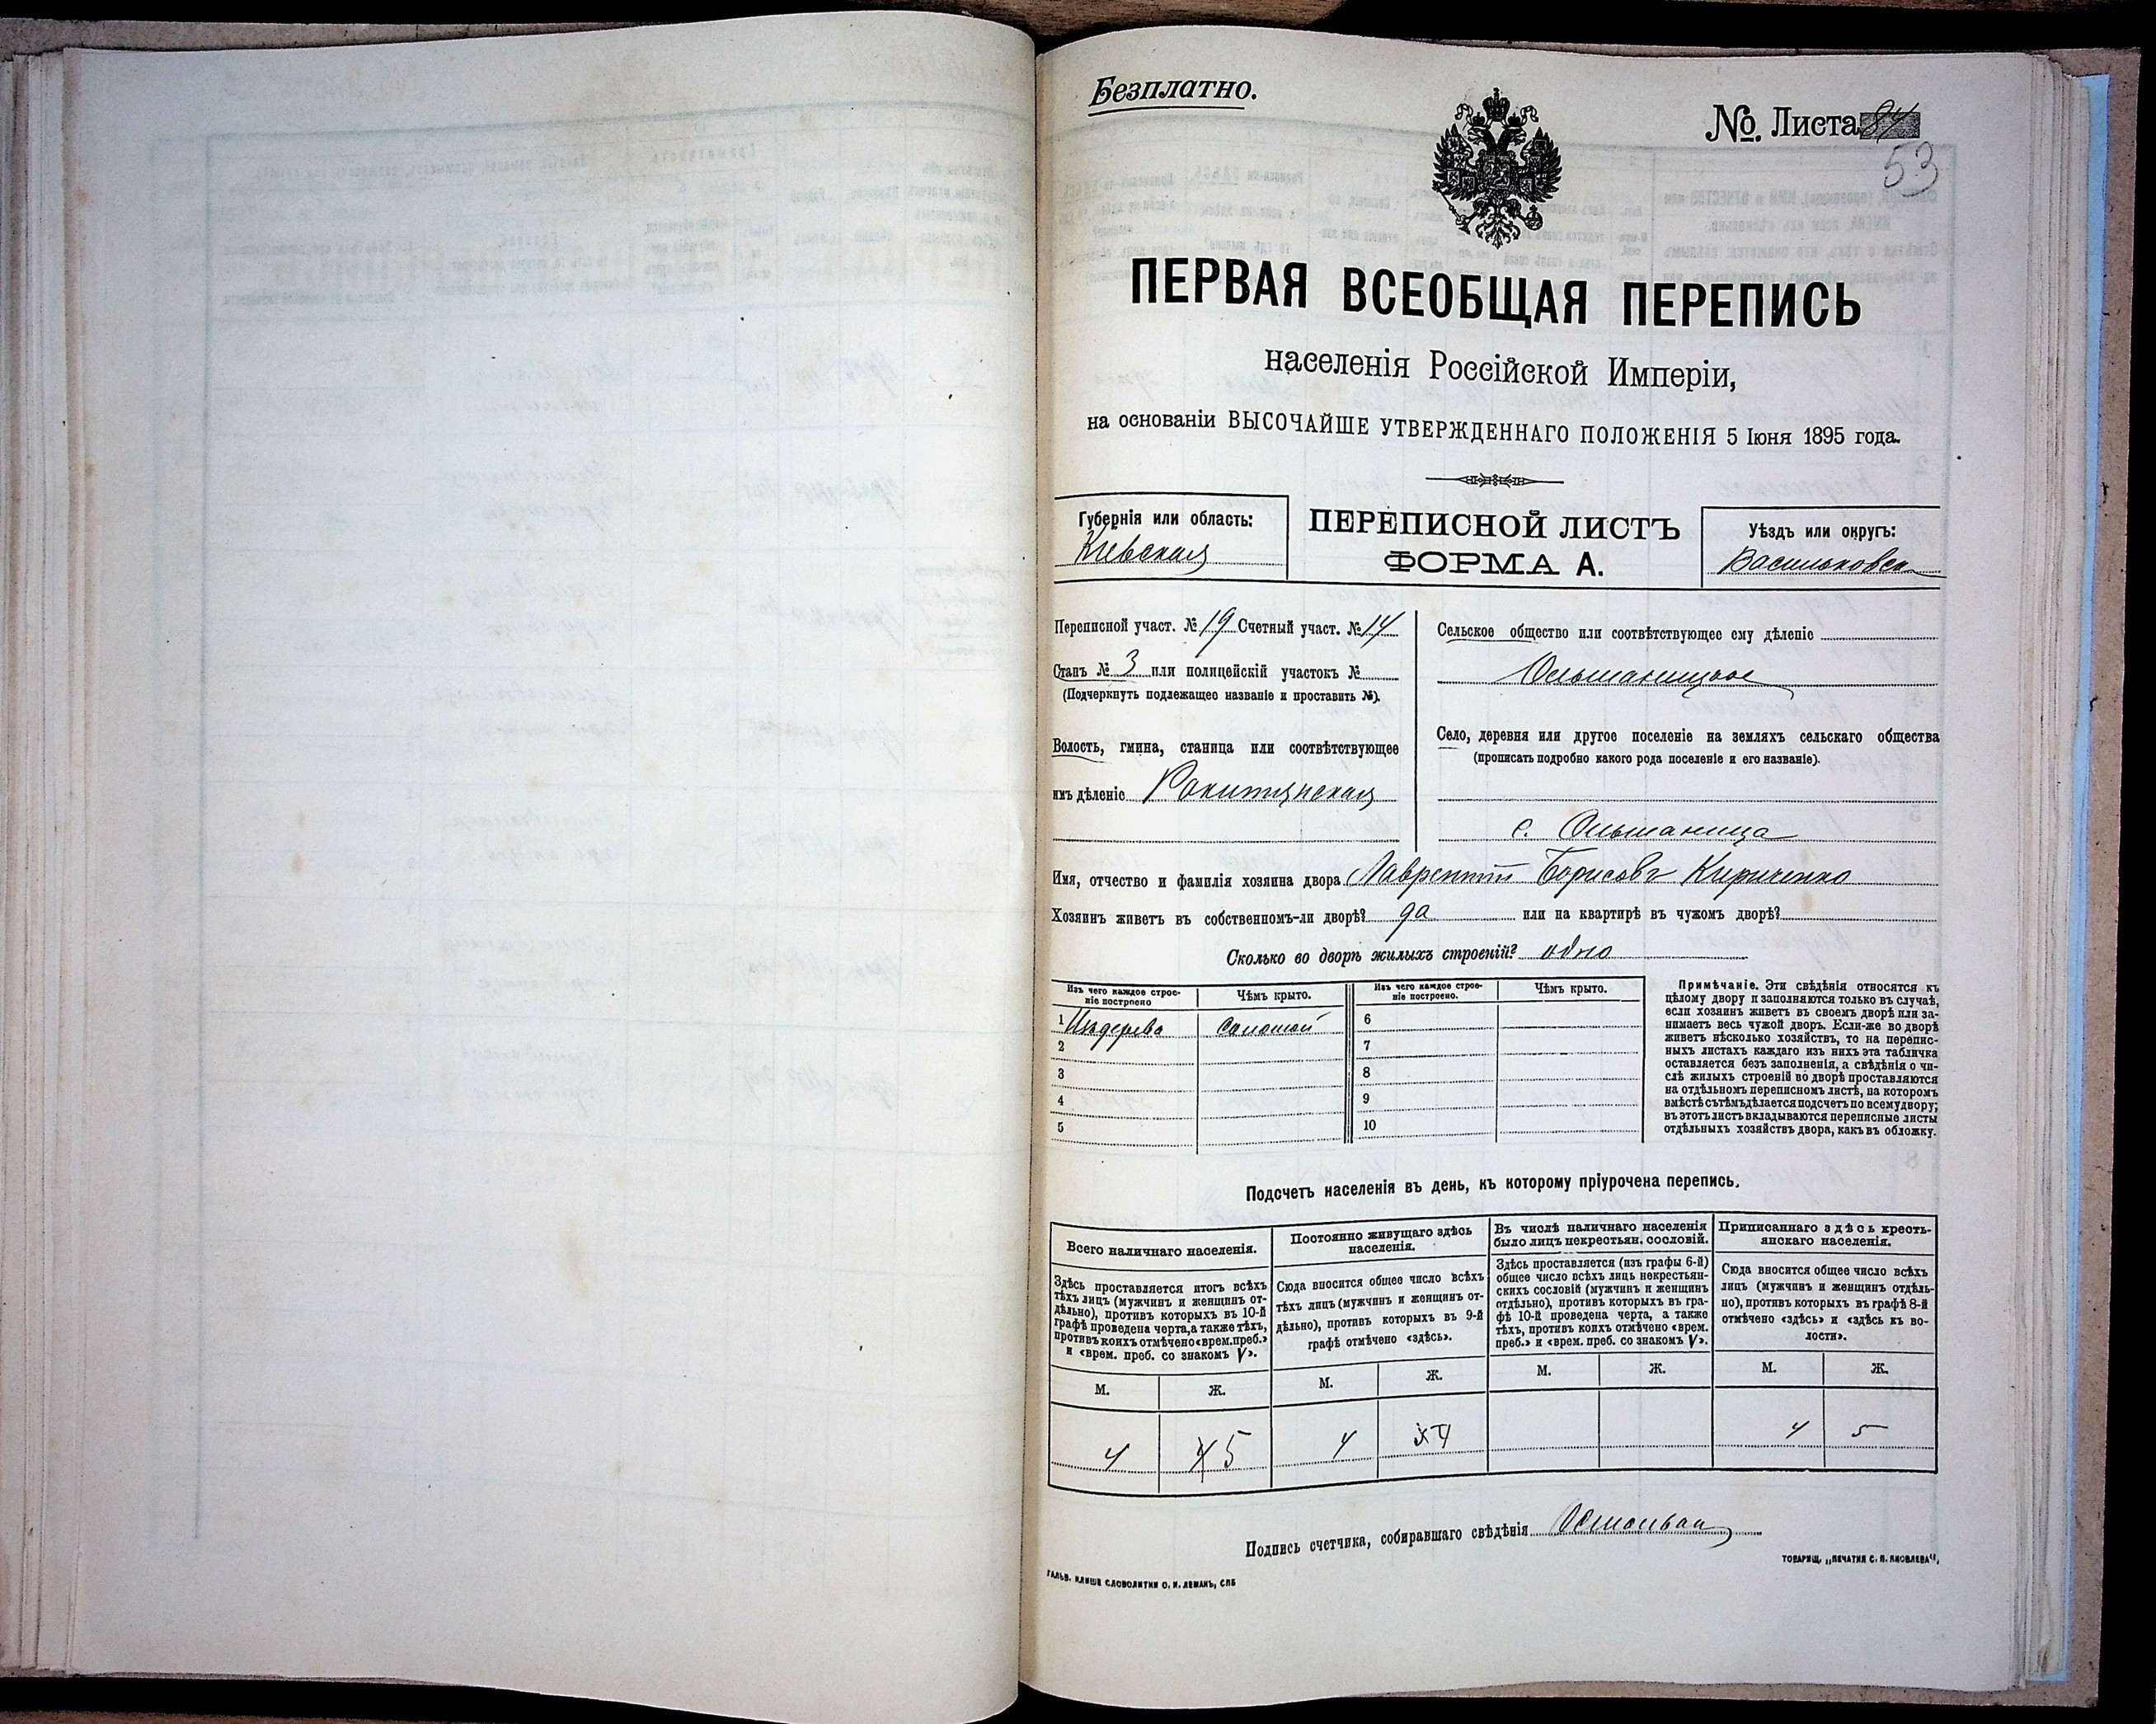 Безплатно.
№ Листа 84
53
ПЕРВАЯ ВСЕОБЩАЯ ПЕРЕПИСЬ
населенія Россійской Имперіи,
на основаніи ВЫСОЧАЙШЕ УТВЕРЖДЕННАГО ПОЛОЖЕНІЯ 5 Іюня 1895 года.
Губернія или область:
Кіевская
ПЕРЕПИСНОЙ ЛИСТЪ
ФОРМА А.
Уѣздъ или округъ:
Васильковск
Переписной участ. № 19 Счетный участ. № 14
Станъ № 3 или полицейскій участокъ №
(Подчеркнуть подлежащее названіе и проставить №).
Волость, гмина, станица или соотвѣтствующее
имъ дѣленіе Ракитянская
Сельское общество или соотвѣтствующее ему дѣленіе
Ольшаницкое
Село, деревня или другое поселеніе на земляхъ сельскаго общества
(прописать подробно какого рода поселеніе и его названіе).
с. Ольшаница
Имя, отчество и фамилія хозяина двора Лаврентій Борисовъ Кириченко
Хозяинъ живетъ въ собственномъ-ли дворѣ? да или на квартирѣ въ чужомъ дворѣ?
Сколько во дворѣ жилыхъ строеній? одно
Изъ чего каждое строе-
ніе построено
Чѣмъ крыто.
Изъ чего каждое строе-
ніе построено.
Чѣмъ крыто.
1 Изъ дерева соломой 6
2 7
3 8
4 9
5 10
Примѣчаніе. Эти свѣдѣнія относятся къ
цѣлому двору и заполняются только въ случаѣ,
если хозяинъ живетъ въ своемъ дворѣ или за-
нимаетъ весь чужой дворъ. Если-же во дворѣ
живетъ нѣсколько хозяйствъ, то на перепис-
ныхъ листахъ каждаго изъ нихъ эта табличка
оставляется безъ заполненія, а свѣдѣнія о чи-
слѣ жилыхъ строеній во дворѣ проставляются
на отдѣльномъ переписномъ листѣ, на которомъ
вмѣстѣ съ тѣмъ дѣлается подсчетъ по всему двору;
въ этотъ листъ вкладываются переписные листы
отдѣльныхъ хозяйствъ двора, какъ въ обложку.
Подсчетъ населенія въ день, къ которому пріурочена перепись.
Всего наличнаго населенія.
Здѣсь проставляется итогъ всѣхъ
тѣхъ лицъ (мужчинъ и женщинъ от-
дѣльно), противъ которыхъ въ 10-й
графѣ проведена черта, а также тѣхъ,
противъ коихъ отмѣчено «врем. преб.»
и «врем. преб. со знакомъ V».
Постоянно живущаго здѣсь
населенія.
Сюда вносится общее число всѣхъ
тѣхъ лицъ (мужчинъ и женщинъ от-
дѣльно), противъ которыхъ въ 9-й
графѣ отмѣчено «здѣсь».
Въ числѣ наличнаго населенія
было лицъ некрестьян. сословій.
Здѣсь проставляется (изъ графы 6-й)
общее число всѣхъ лицъ некрестьян-
скихъ сословій (мужчинъ и женщинъ
отдѣльно), противъ которыхъ въ гра-
фѣ 10-й проведена черта, а также
тѣхъ, противъ коихъ отмѣчено «врем.
преб.» и «врем. преб. со знакомъ V».
Приписаннаго здѣсь кресть-
янскаго населенія.
Сюда вносится общее число всѣхъ
лицъ (мужчинъ и женщинъ отдѣль-
но), противъ которыхъ въ графѣ 8-й
отмѣчено «здѣсь» и «здѣсь въ во-
лости».
М. Ж. М. Ж. М. Ж. М. Ж.
4 4 5 4 5 4 4 5
Подпись счетчика, собиравшаго свѣдѣнія
ГАЛЬВ. КЛИШЕ СЛОВОЛИТНИ О. И. ЛЕМАНЪ, СПБ
ТОВАРИЩ. „ПЕЧАТНЯ С. П. ЯКОВЛЕВА“,